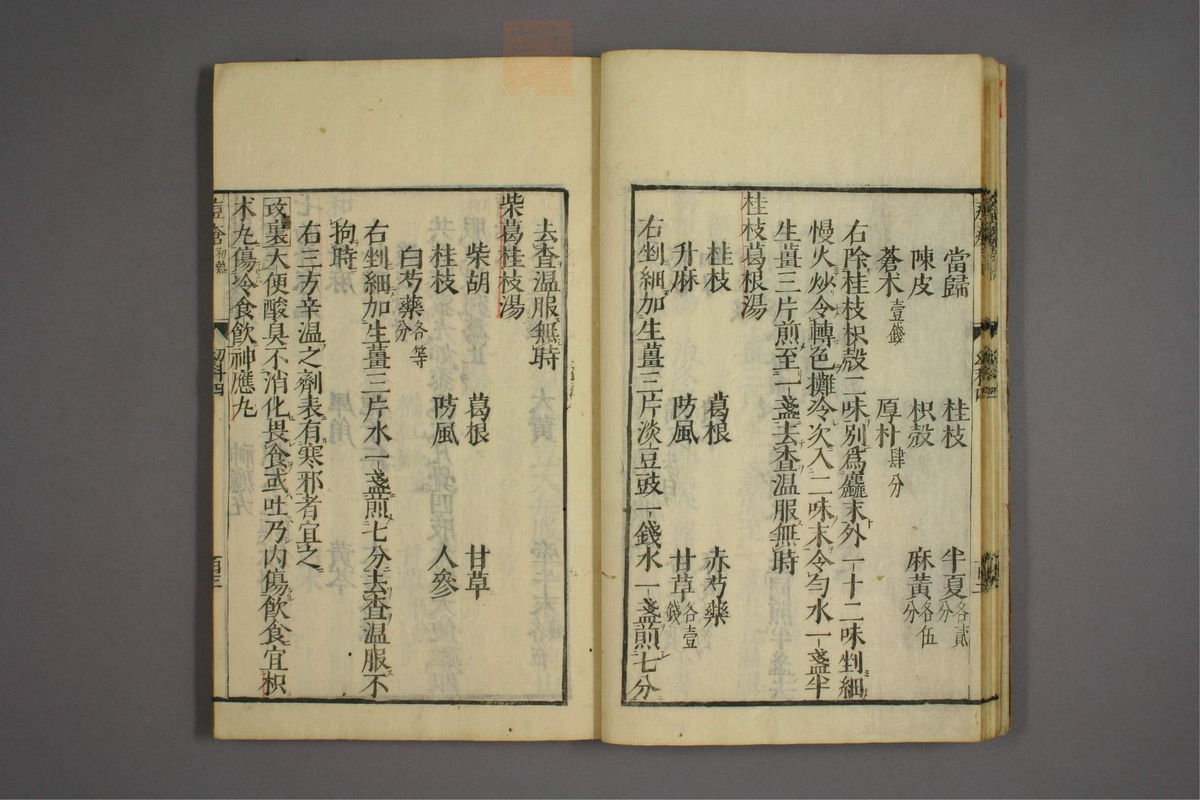 當歸 桂枝 半夏各貳分
陳皮 枳殼 麻黃各伍分
蒼朮壹錢 厚朴肆分
右除桂枝枳殼二味別爲麤末外一十二味剉細
慢火炒令轉色攤冷次入二味末令勻水一盞半
生薑三片煎至一盞去查溫服無時
桂枝葛根湯
桂枝 葛根 赤芍藥
升麻 防風 甘草各壹錢
右剉細加生薑三片淡豆豉一錢水一盞煎七分
去查溫服無時
柴葛桂枝湯
柴胡 葛根 甘草
桂枝 防風 人參
白芍藥各等分
右剉細加生薑三片水一盞煎七分去查溫服不
拘時
右三方辛溫之劑表有寒邪者宜之
攻裏大便酸臭不消化畏食或吐乃內傷飲食宜枳
朮丸傷冷食飲神應丸